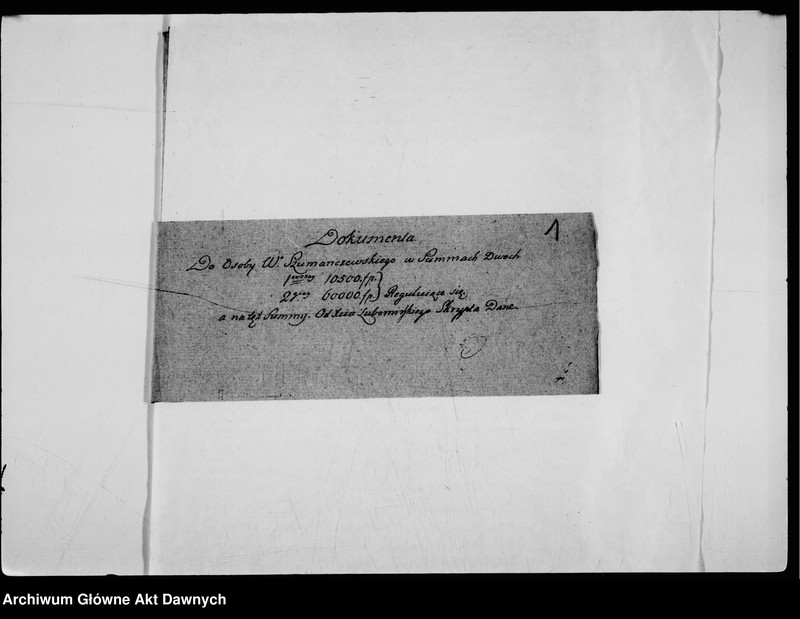 1
Dokumenta
Do Osoby Wo Szumanczewskiego w Summach Dwoch
1wszey 10500.fp.
2giey 60000.fp. Regulujące się
a na też Summy. Od Xcia Lubomirskiego Skrypta Dane.
Archiwum Główne Akt Dawnych